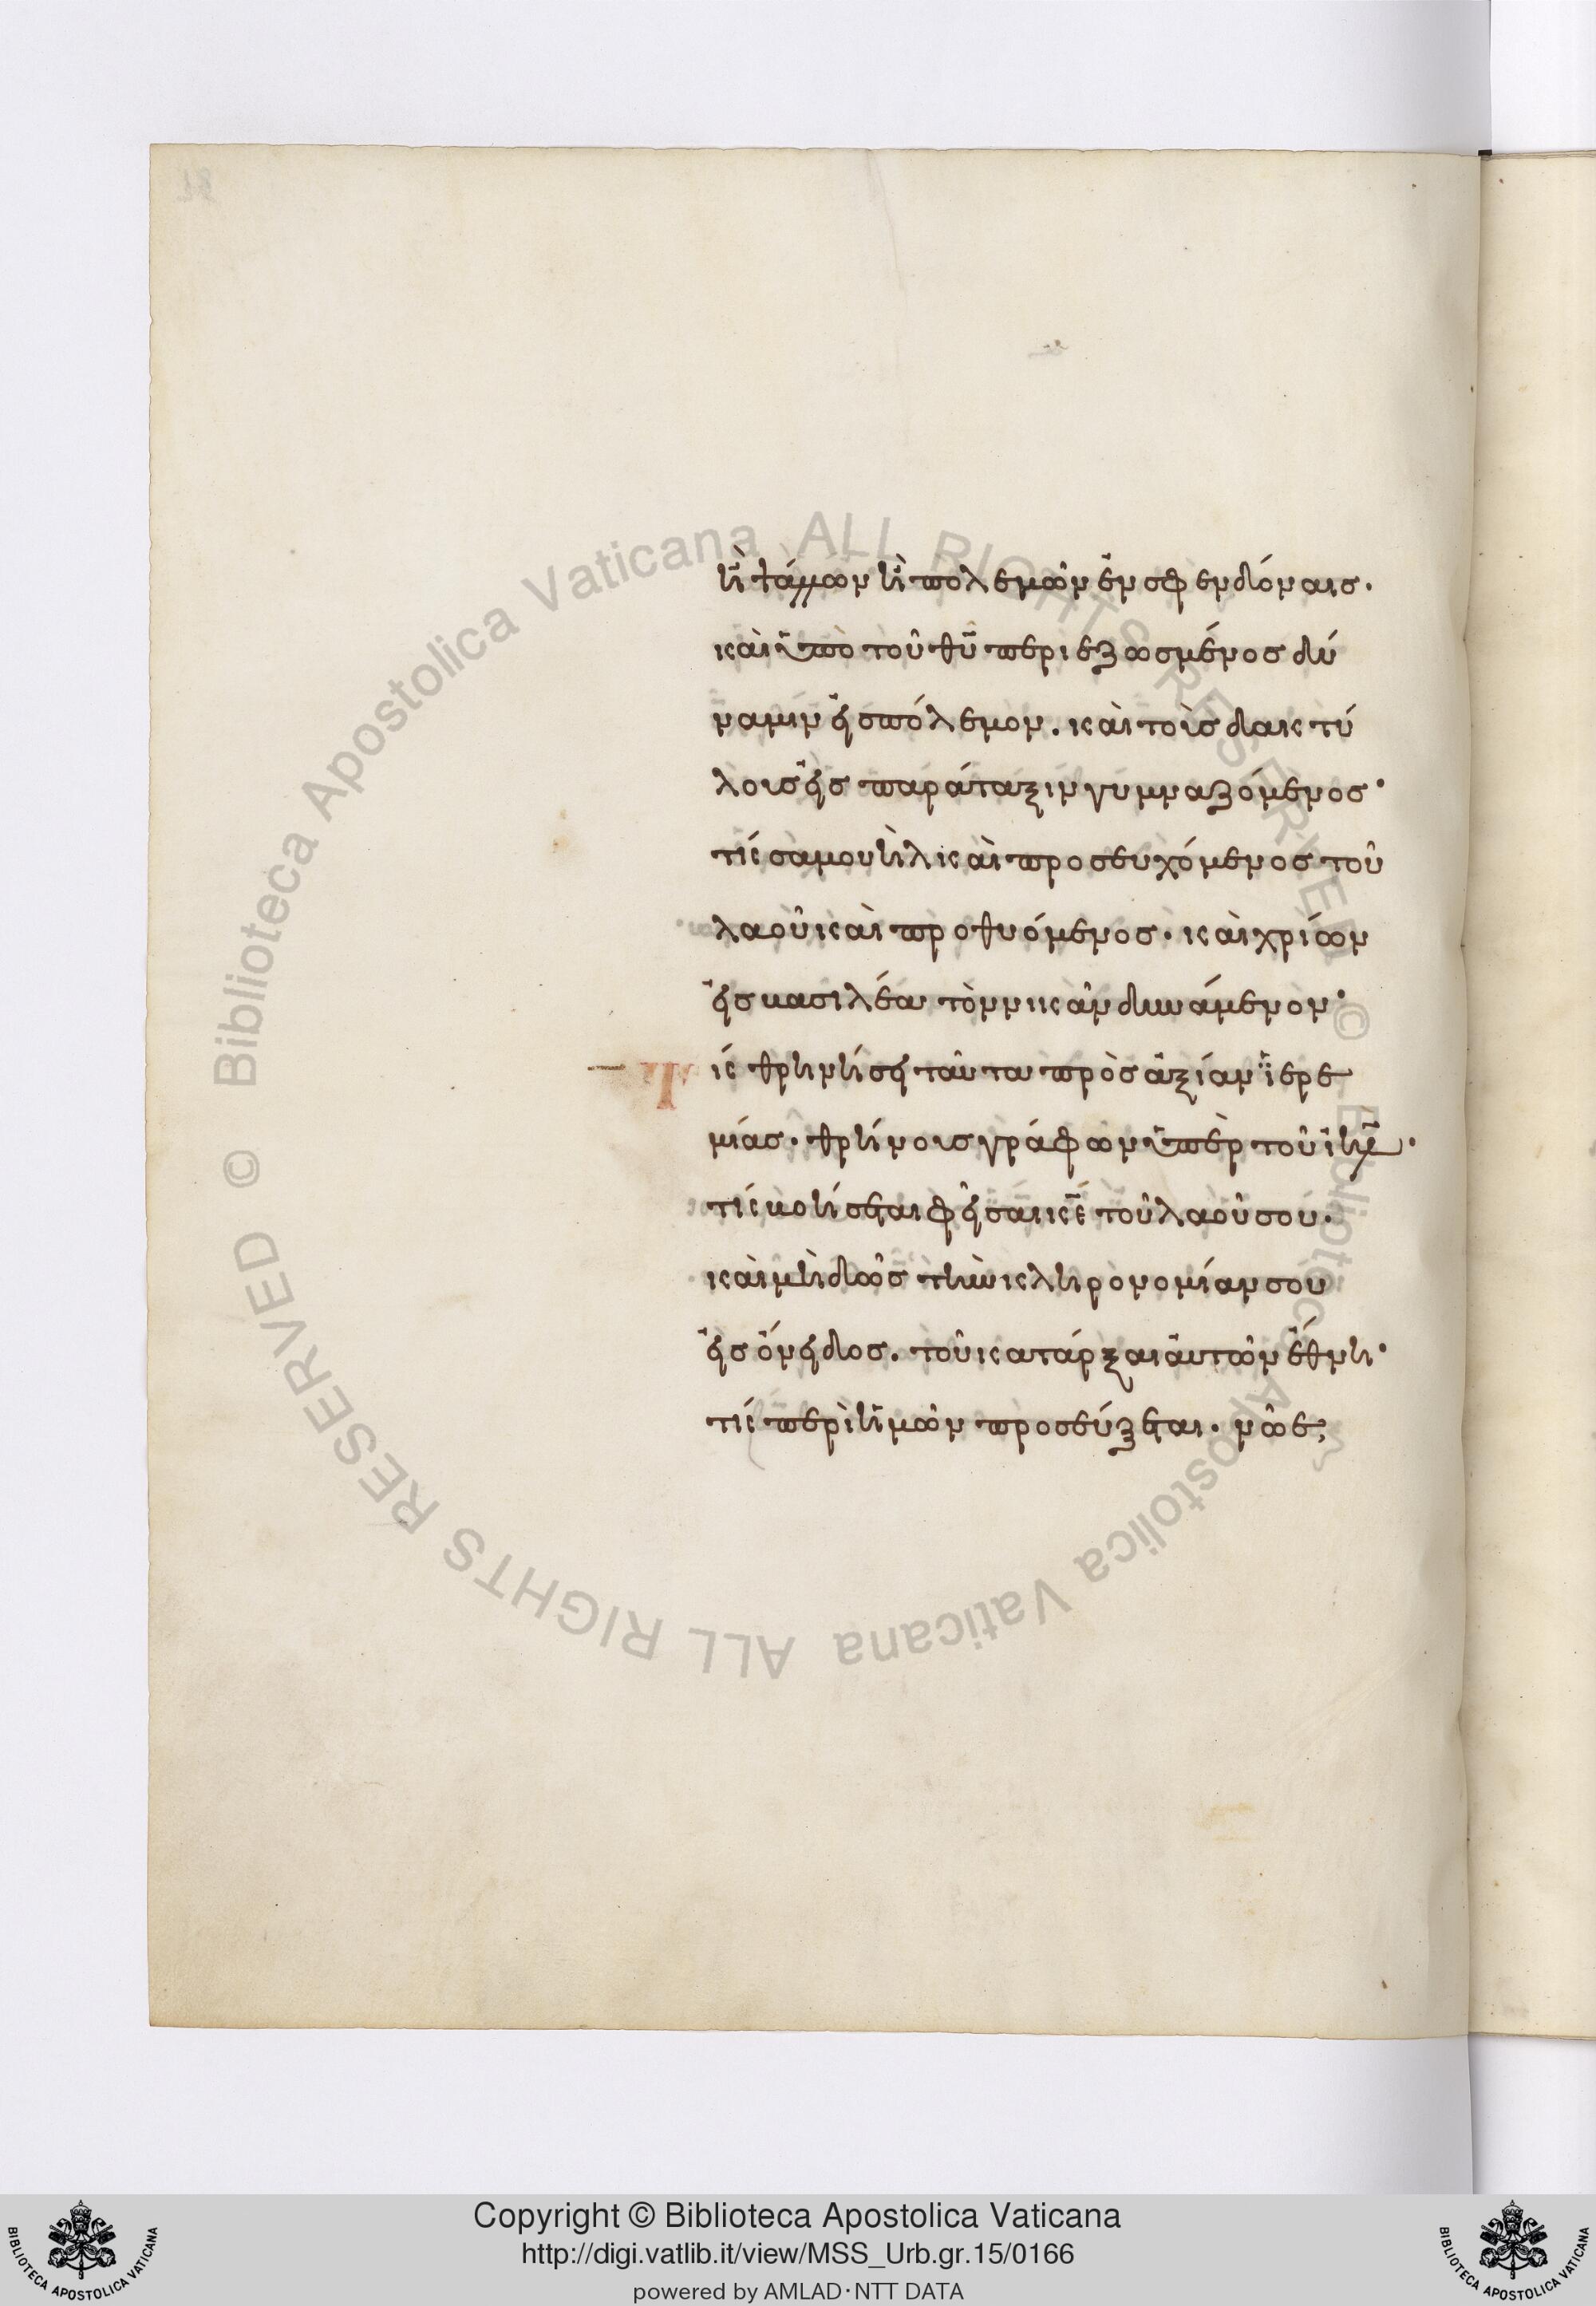 ἢ ψάλλων ἢ πολεμῶν ἐν σφενδόναις.
καὶ ὑπὸ τοῦ θῦ περιεζωσμένος δύ
ναμιν εἰς πόλεμον. καὶ τοῖς δακτύ
λοις εἰς παράταξιν γυμναζόμενος·
τίς σαμουὴλ καὶ προσευχόμενος τοῦ
λαοῦ καὶ προθυόμενος. καὶ χρίων
εἰς βασιλέα τὸν νικᾶν δυνάμενον·
τίς θρηνήσει ταῦτα πρὸς ἀξίαν ἱερε
μίας. θρήνοις γράφων ὑπὲρ τοῦ ιηλ.
τίς βοήσεται φεῖσαι κε τοῦ λαοῦ σου.
καὶ μὴ δῶς τὴν κληρονομίαν σου
εἰς ὄνειδος. τοῦ κατάρξαι αὐτῶν ἔθνη·
τίς περὶ ἡμῶν προσεύξεται. νῶε,
Copyright © Biblioteca Apostolica Vaticana
http://digi.vatlib.it/view/MSS_Urb.gr.15/0166
powered by AMLAD·NTT DATA
BIBLIOTECA APOSTOLICA VATICANA
BIBLIOTECA APOSTOLICA VATICANA
© Biblioteca Apostolica Vaticana ALL RIGHTS RESERVED
© Biblioteca Apostolica Vaticana ALL RIGHTS RESERVED